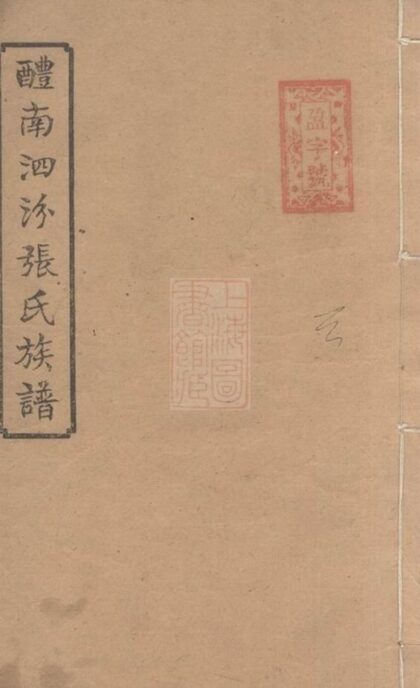 盈字號
上海圖
書館藏
醴南泗汾張氏族譜